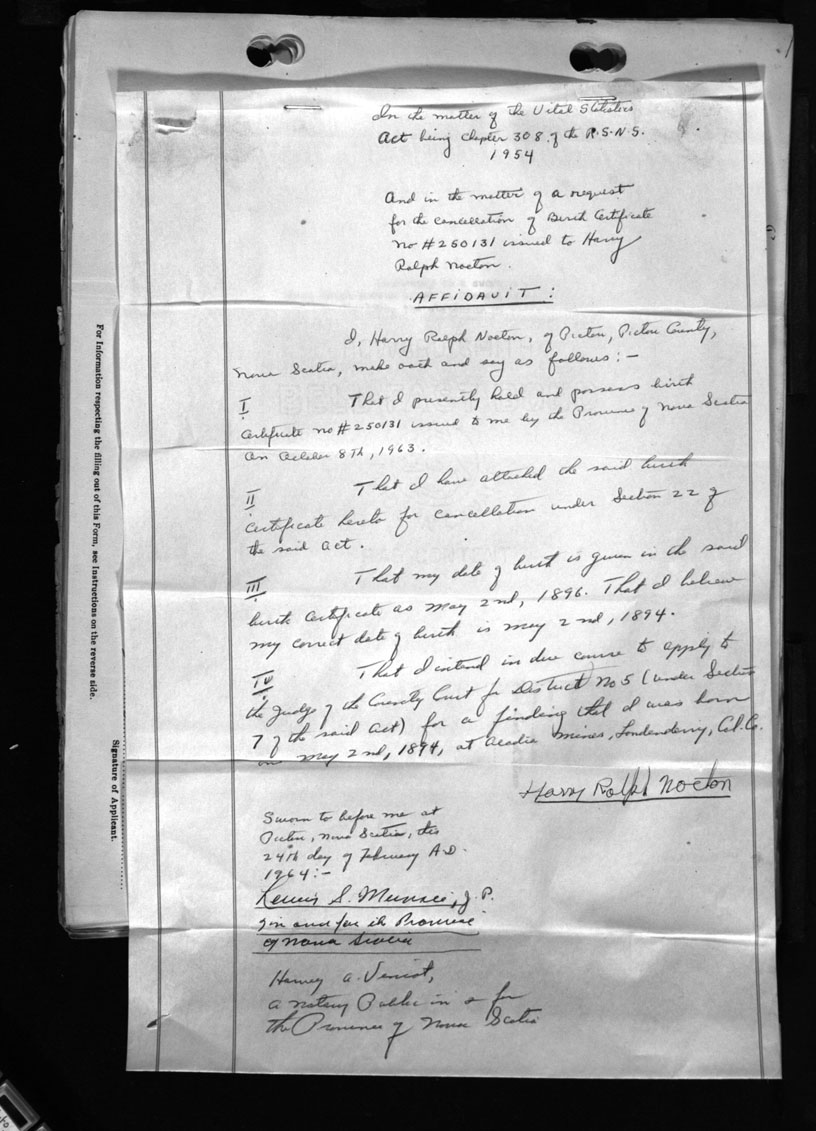 In the matter of the Vital Statistics
Act being Chapter 308 of the R.S.N.S.
1954
And in the matter of a request
for the cancellation of Birth Certificate
No #250131 issued to Harry
Ralph Nocton.
AFFIDAVIT:
I, Harry Ralph Nocton, of Pictou, Pictou County,
Nova Scotia, make oath and say as follows:-
I. That I presently hold and possess birth
Certificate no #250131 issued to me by the Province of Nova Scotia
on October 8th, 1963.
II. That I have attached the said birth
Certificate hereto for cancellation under Section 22 of
the said Act.
III. That my date of birth is given in the said
birth Certificate as May 2nd, 1896. That I believe
my correct date of birth is May 2nd, 1894.
IV. That I intend in due course to apply to
the Judge of the County Court for District No 5 (under Section
7 of the said Act) for a finding that I was born
on May 2nd, 1894, at Acadia Mines, Londonderry, Col. Co.
Harry Ralph Nocton
Sworn to before me at
Pictou, Nova Scotia, this
24th day of February A.D.
1964:-
S. J.P.
in and for the Province
of Nova Scotia
Harvey A. Veniot,
a Notary Public in & for
the Province of Nova Scotia
For Information respecting the filling out of this Form, see Instructions on the reverse side.
Signature of Applicant.